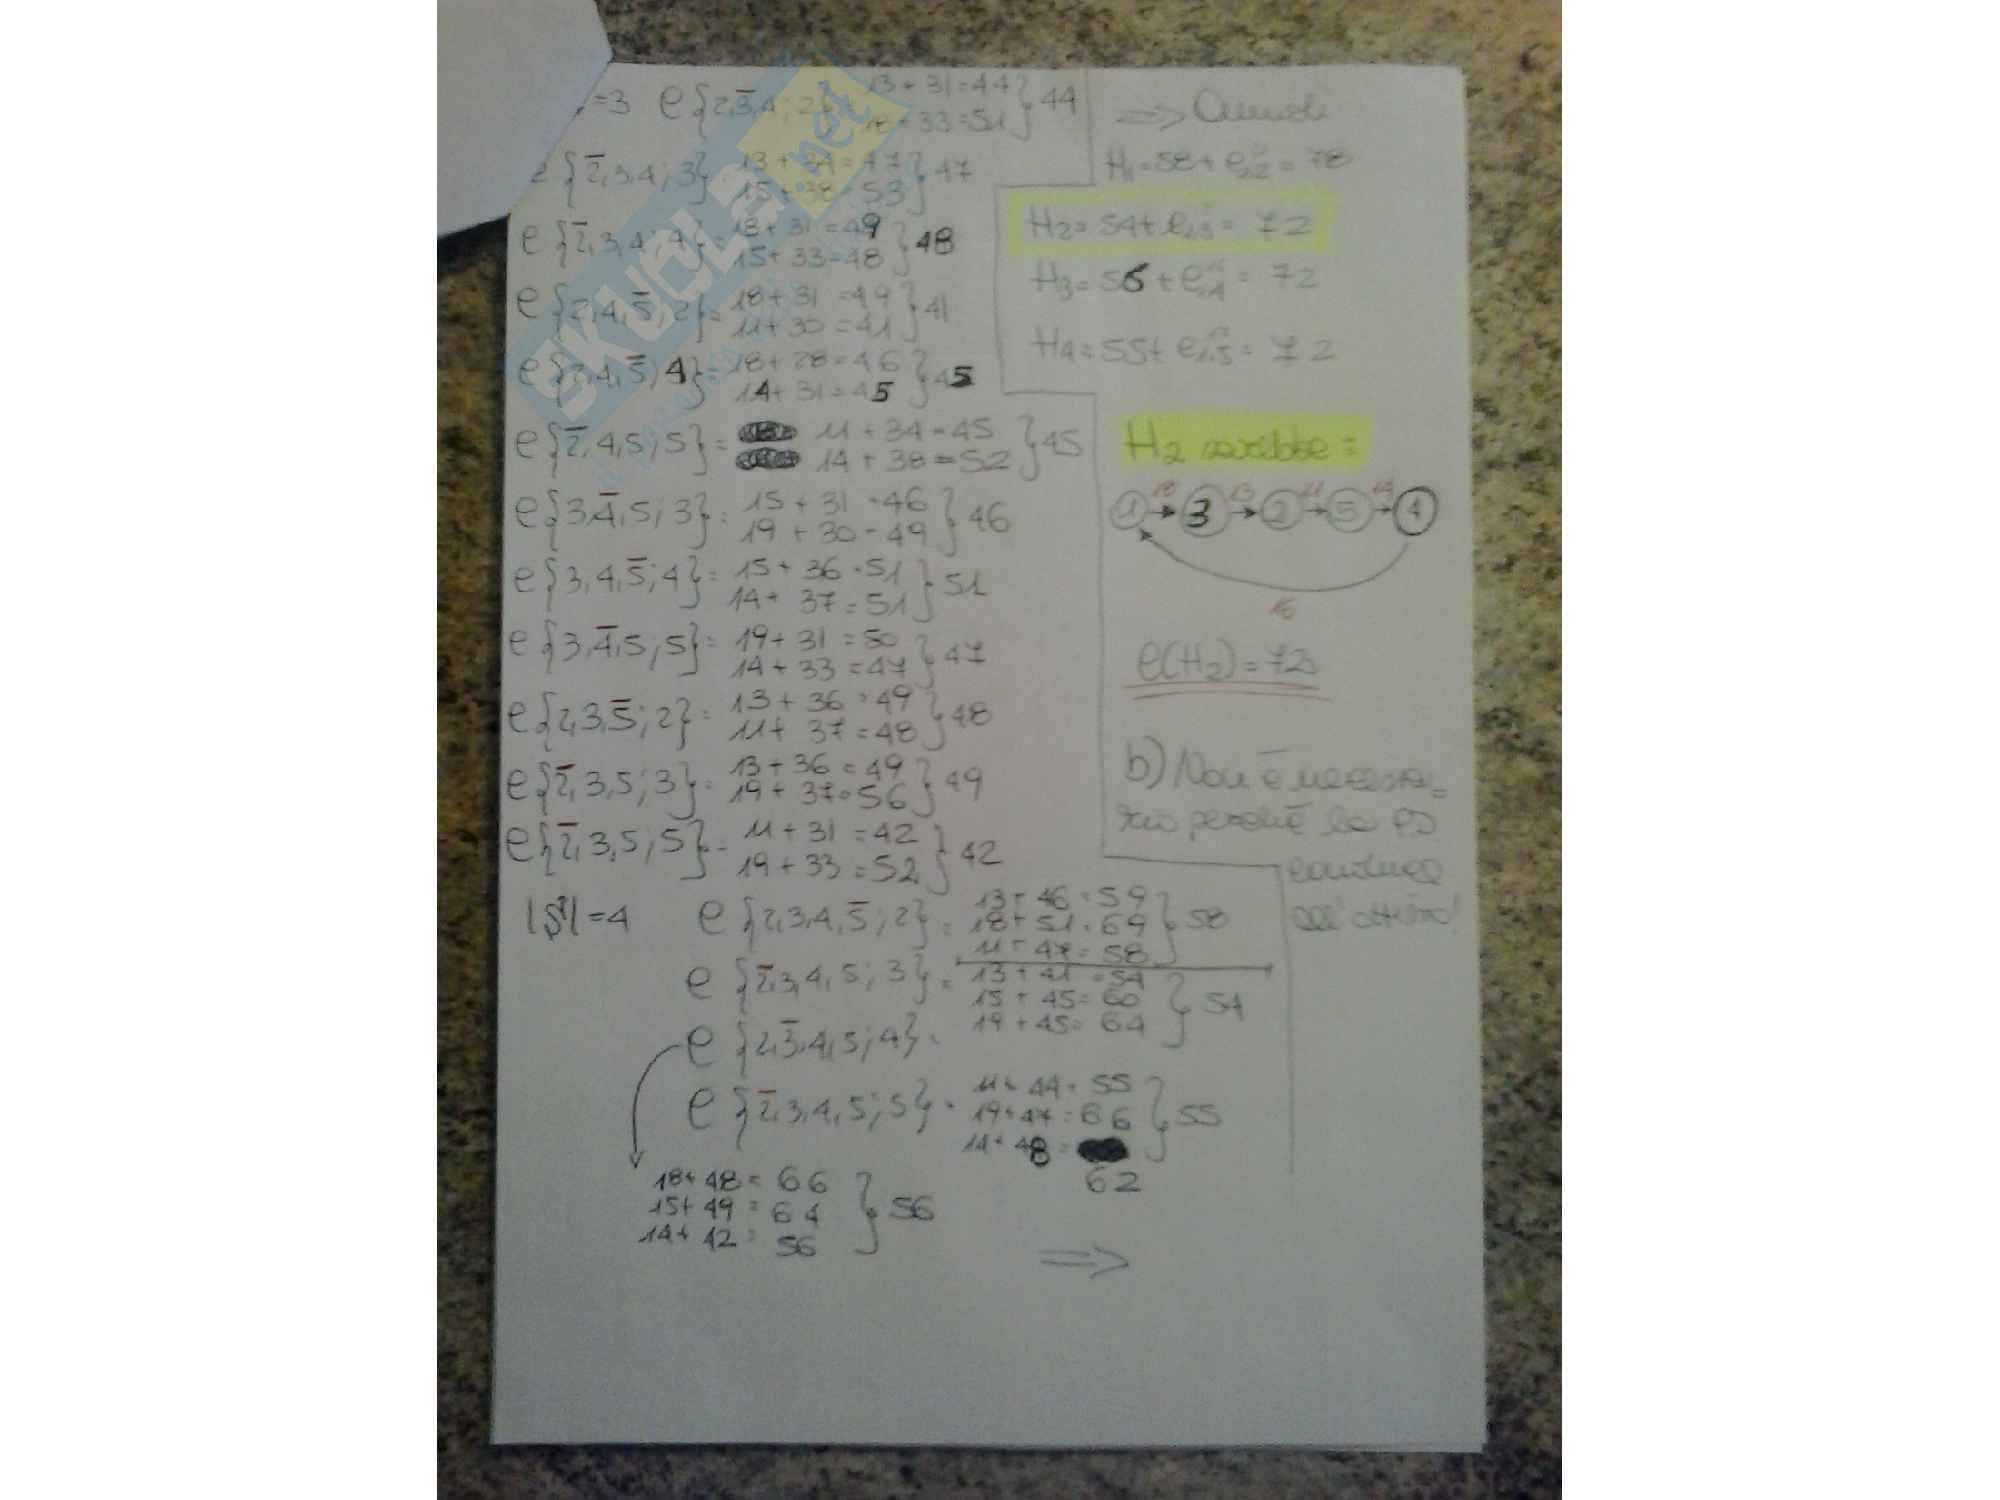 =3 e{2,3̅,4;2} 13+31=44
18+33=51 } 44
e{2̅,3,4;3} 13+34=47
15+38=53 } 47
e{2̅,3,4;4}= 18+31=49
15+33=48 } 48
e{2,4,5̅;2}= 18+31=49
11+30=41 } 41
e{2,4,5̅;4}= 18+28=46
14+31=45 } 45
e{2̅,4,5;5}= 11+34=45
14+38=52 } 45
e{3,4̅,5;3}= 15+31=46
19+30=49 } 46
e{3,4,5̅;4}= 15+36=51
14+37=51 } 51
e{3,4̅,5;5}= 19+31=50
14+33=47 } 47
e{2,3,5̅;2}= 13+36=49
11+37=48 } 48
e{2̅,3,5;3}= 13+36=49
19+37=56 } 49
e{2̅,3,5;5}= 11+31=42
19+33=52 } 42
|S|=4 e{2,3,4,5̅;2}= 13+46=59
18+51=69
11+47=58 } 58
e{2̅,3,4,5;3}= 13+41=54
15+45=60
19+45=64 } 54
e{2,3̅,4,5;4}=
e{2̅,3,4,5;5}= 11+44=55
19+47=66
14+48=
62 } 55
18+48=66
15+49=64
14+42=56 } 56
⇒
⇒ Quindi
H1=58+e1,2=78
H2=54+e1,3=72
H3=56+e1,4=72
H4=55+e1,5=72
H2 sarebbe=
18 13 11 14
1 → 3 → 2 → 5 → 4
16
e(H2)=72
b) Non è necessa=
rio perché la PD
conduce
all'ottimo!
SKUOLA.net